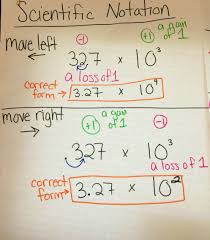 Scientific Notation
move left ← (-1) (+1) a gain of 1
327 x 10³
a loss of 1
correct form → 3.27 x 10⁴
move right → (+1) a gain of 1 (-1)
327 x 10³
a loss of 1
correct form → 3.27 x 10²